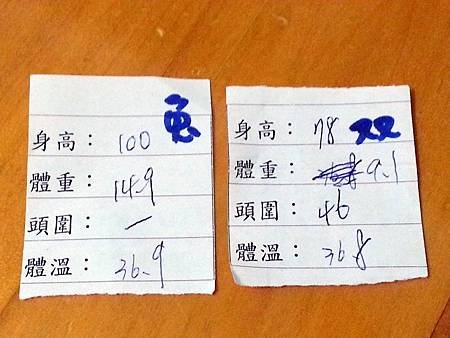 兔
身高：100
體重：14.9
頭圍：/
體溫：36.9
身高：78 双
體重：9.1
頭圍：46
體溫：36.8